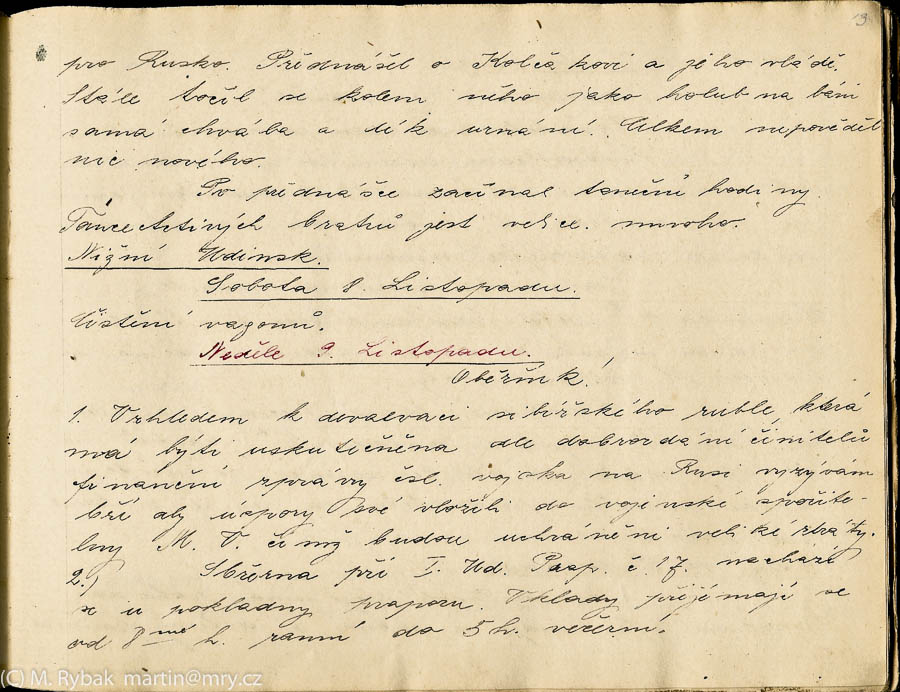 19
pro Rusko. Přednášel o Kolčakovi a jeho vládě.
Stále točil se kolem něho jako holub na báni
samá chvába a dík uznání. Celkem nepověděl
nic nového.
Po přednášce začínal taneční hodiny
Tancechtivých bratrů jest velice mnoho.
Nižní Udinsk.
Sobota 8. Listopadu.
Čištění vagonů.
Neděle 9. Listopadu.
Oběžník!
1. Vzhledem k devalvaci sibiřského ruble, která
má býti uskutečněna dle dobrozdání činitelů
finanční zprávy čsl. vojska na Rusi vyzývám
bří aby úspory své vložili do vojenské spořitel-
ny M. V. čímž budou uchráněni veliké ztráty.
2.) Sběrna při I. Ud. Prap. č. 7. nachází
se u pokladny praporu. Vklady přijímají se
od 8mé h. ranní do 5 h. večerní.
(C) M. Rybak martin@mry.cz